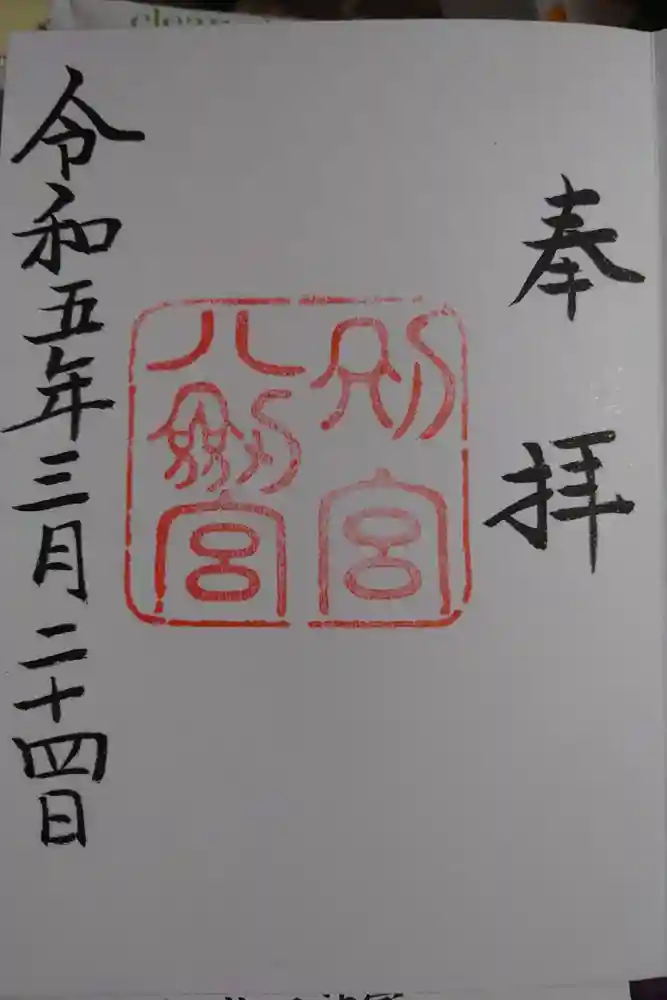 奉拝
別宮
八剱宮
令和五年三月二十四日
clear